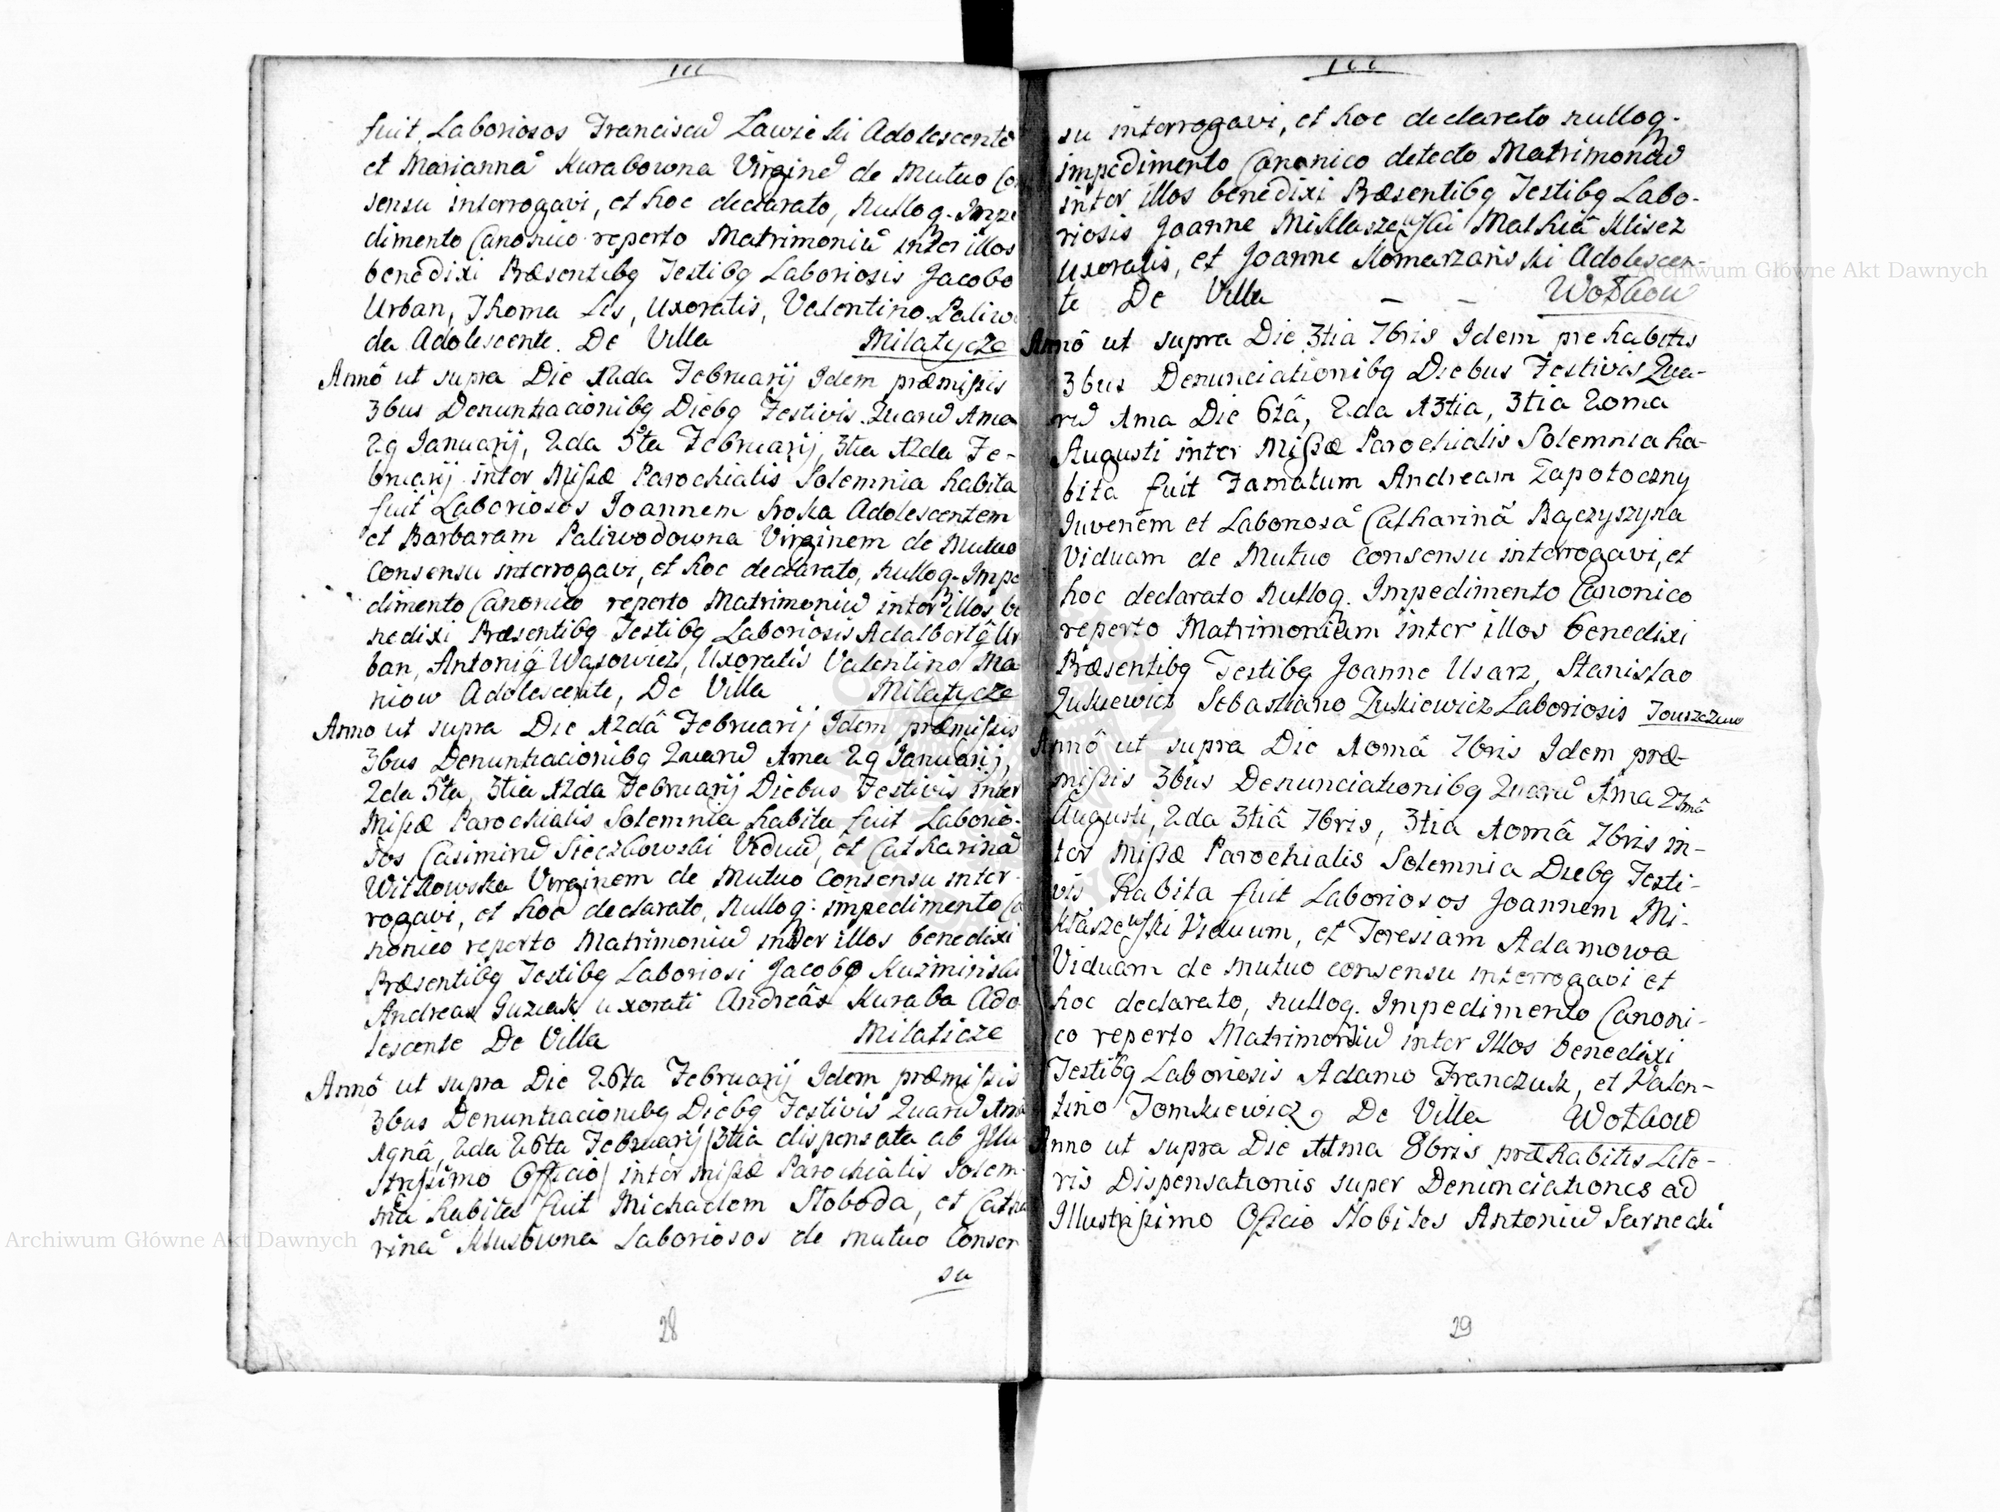 fuit Laboriosos Franciscũ Lawicki Adolescente
et Mariannã Kurabowna Virginẽ de Mutuo Con
sensu interrogavi, et hoc declarato, nulloq. Impe
dimento Canonico reperto Matrimoniũ inter illos
benedixi Præsentibq Testibq Laboriosis Jacobo
Urban, Thoma Lis, Uxoratis, Valentino Paliwo
da Adolescente. De Villa Milatycze
Annô ut supra Die 12da Februarij Idem præmissis
3bus Denuntiacionibq Diebq Festivis Quarũ 1ma
29 Januarij, 2da 5ta Februarij, 3tia 12da Fe-
bruarij inter Missæ Parochialis Solemnia habita
fuit Laboriosos Joannem Sroka Adolescentem
et Barbaram Paliwodowna Virginem de Mutuo
Consensu interrogavi, et hoc declarato, nulloq. Impe
dimento Canonico reperto Matrimoniũ inter illos be
nedixi Præsentibq Testibq Laboriosis Adalbertq Ur
ban, Antoniq Wąsowicz, Uxoratis Valentino Ma
niow Adolescente, De Villa Milatycze
Anno ut supra Die 12dâ Februarij Idem præmissis
3bus Denuntiacionibq Quarũ 1ma 29 Januarij,
2da 5ta, 3tia 12da Februarij Diebus Festivis inter
Missæ Parochialis Solemnia habita fuit Laborio-
sos Casimirũ Sieczkowski Viduũ, et Catharinã
Witkowska Virginem de Mutuo Consensu inter-
rogavi, et hoc declarato, nulloq: impedimento Ca
nonico reperto Matrimoniũ inter illos benedixi
Præsentibq Testibq Laboriosi Jacobq Kuźminski
Andreas Guziak uxorati Andreas Kuraba Ado
lescente De Villa Milaticze
Annô ut supra Die 26ta Februarij Idem præmissis
3bus Denuntiacionibq Diebq Festivis Quarũ 1ma
19nâ, 2da 26ta Februarij /3tia dispensata ab Illu
strissimo Officio/ inter missæ Parochialis Solem-
nia habita fuit Michaelem Sloboda, et Catha
rinã Klusowna Laboriosos de mutuo Consen
su
28
su interrogavi, et hoc declarato nulloq.
impedimento Canonico detecto Matrimoniũ
inter illos benedixi Præsentibq Testibq Labo-
riosis Joanne Miklaszewski Mathia Klisez
Uxoratis, et Joanne Komarzański Adolescen-
te De Villa - - Wołkow
Annô ut supra Die 3tia 7bris Idem prehabitis
3bus Denunciationibq Diebus Festivis Qua-
rũ 1ma Die 6tâ, 2da 13tia, 3tia 20ma
Augusti inter Missæ Parochialis Solemnia ha-
bita fuit Famatum Andream Zapotoczny
Juvenem et Laboriosã Catharinã Bączyszyna
Viduam de Mutuo Consensu interrogavi, et
hoc declarato nulloq. Impedimento Canonico
reperto Matrimonium inter illos benedixi
Præsentibq Testibq Joanne Usarz, Stanislao
Zukiewicz Sebastiano Zukiewicz Laboriosis
Annô ut supra Die 10mâ 7bris Idem præ-
missis 3bus Denunciationibq Quarũ 1ma 27mâ
Augusti, 2da 3tiâ 7bris, 3tia 10mâ 7bris in-
ter Missæ Parochialis Solemnia Diebq Festi-
vis habita fuit Laboriosos Joannem Mi-
kłaszewski Viduum, et Teresiam Adamowa
Viduam de mutuo consensu interrogavi et
hoc declarato, nulloq. Impedimento Canoni-
co reperto Matrimoniũ inter Illos benedixi
Testibq Laboriosis Adamo Franczuk, et Valen-
tino Tomkiewicz, De Villa Wołkow
Anno ut supra Die 11ma 8bris præhabitis Lite-
ris Dispensationis super Denunciationes ad
Illustrissimo Officio Nobiles Antoniũ Sarnecki
29
Archiwum Główne Akt Dawnych
Archiwum Główne Akt Dawnych